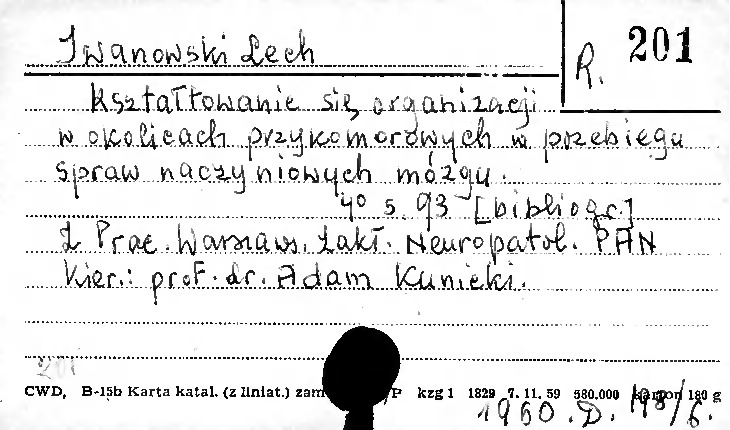 Iwanowski Lech
R. 201
Kształtowanie się organizacji
w okolicach przykomorowych w przebiegu
spraw naczyniowych mózgu.
4° s. 93 [bibliogr.]
Z Prac. Warszaw. Zakł. Neuropatol. PAN
Kier.: prof. dr. Adam Kunicki.
201
CWD, B-15b Karta katal. (z liniat.) zam /P kzg 1 1829 7. 11. 59 580.000 karton 180 g
1960. D. 198/6.